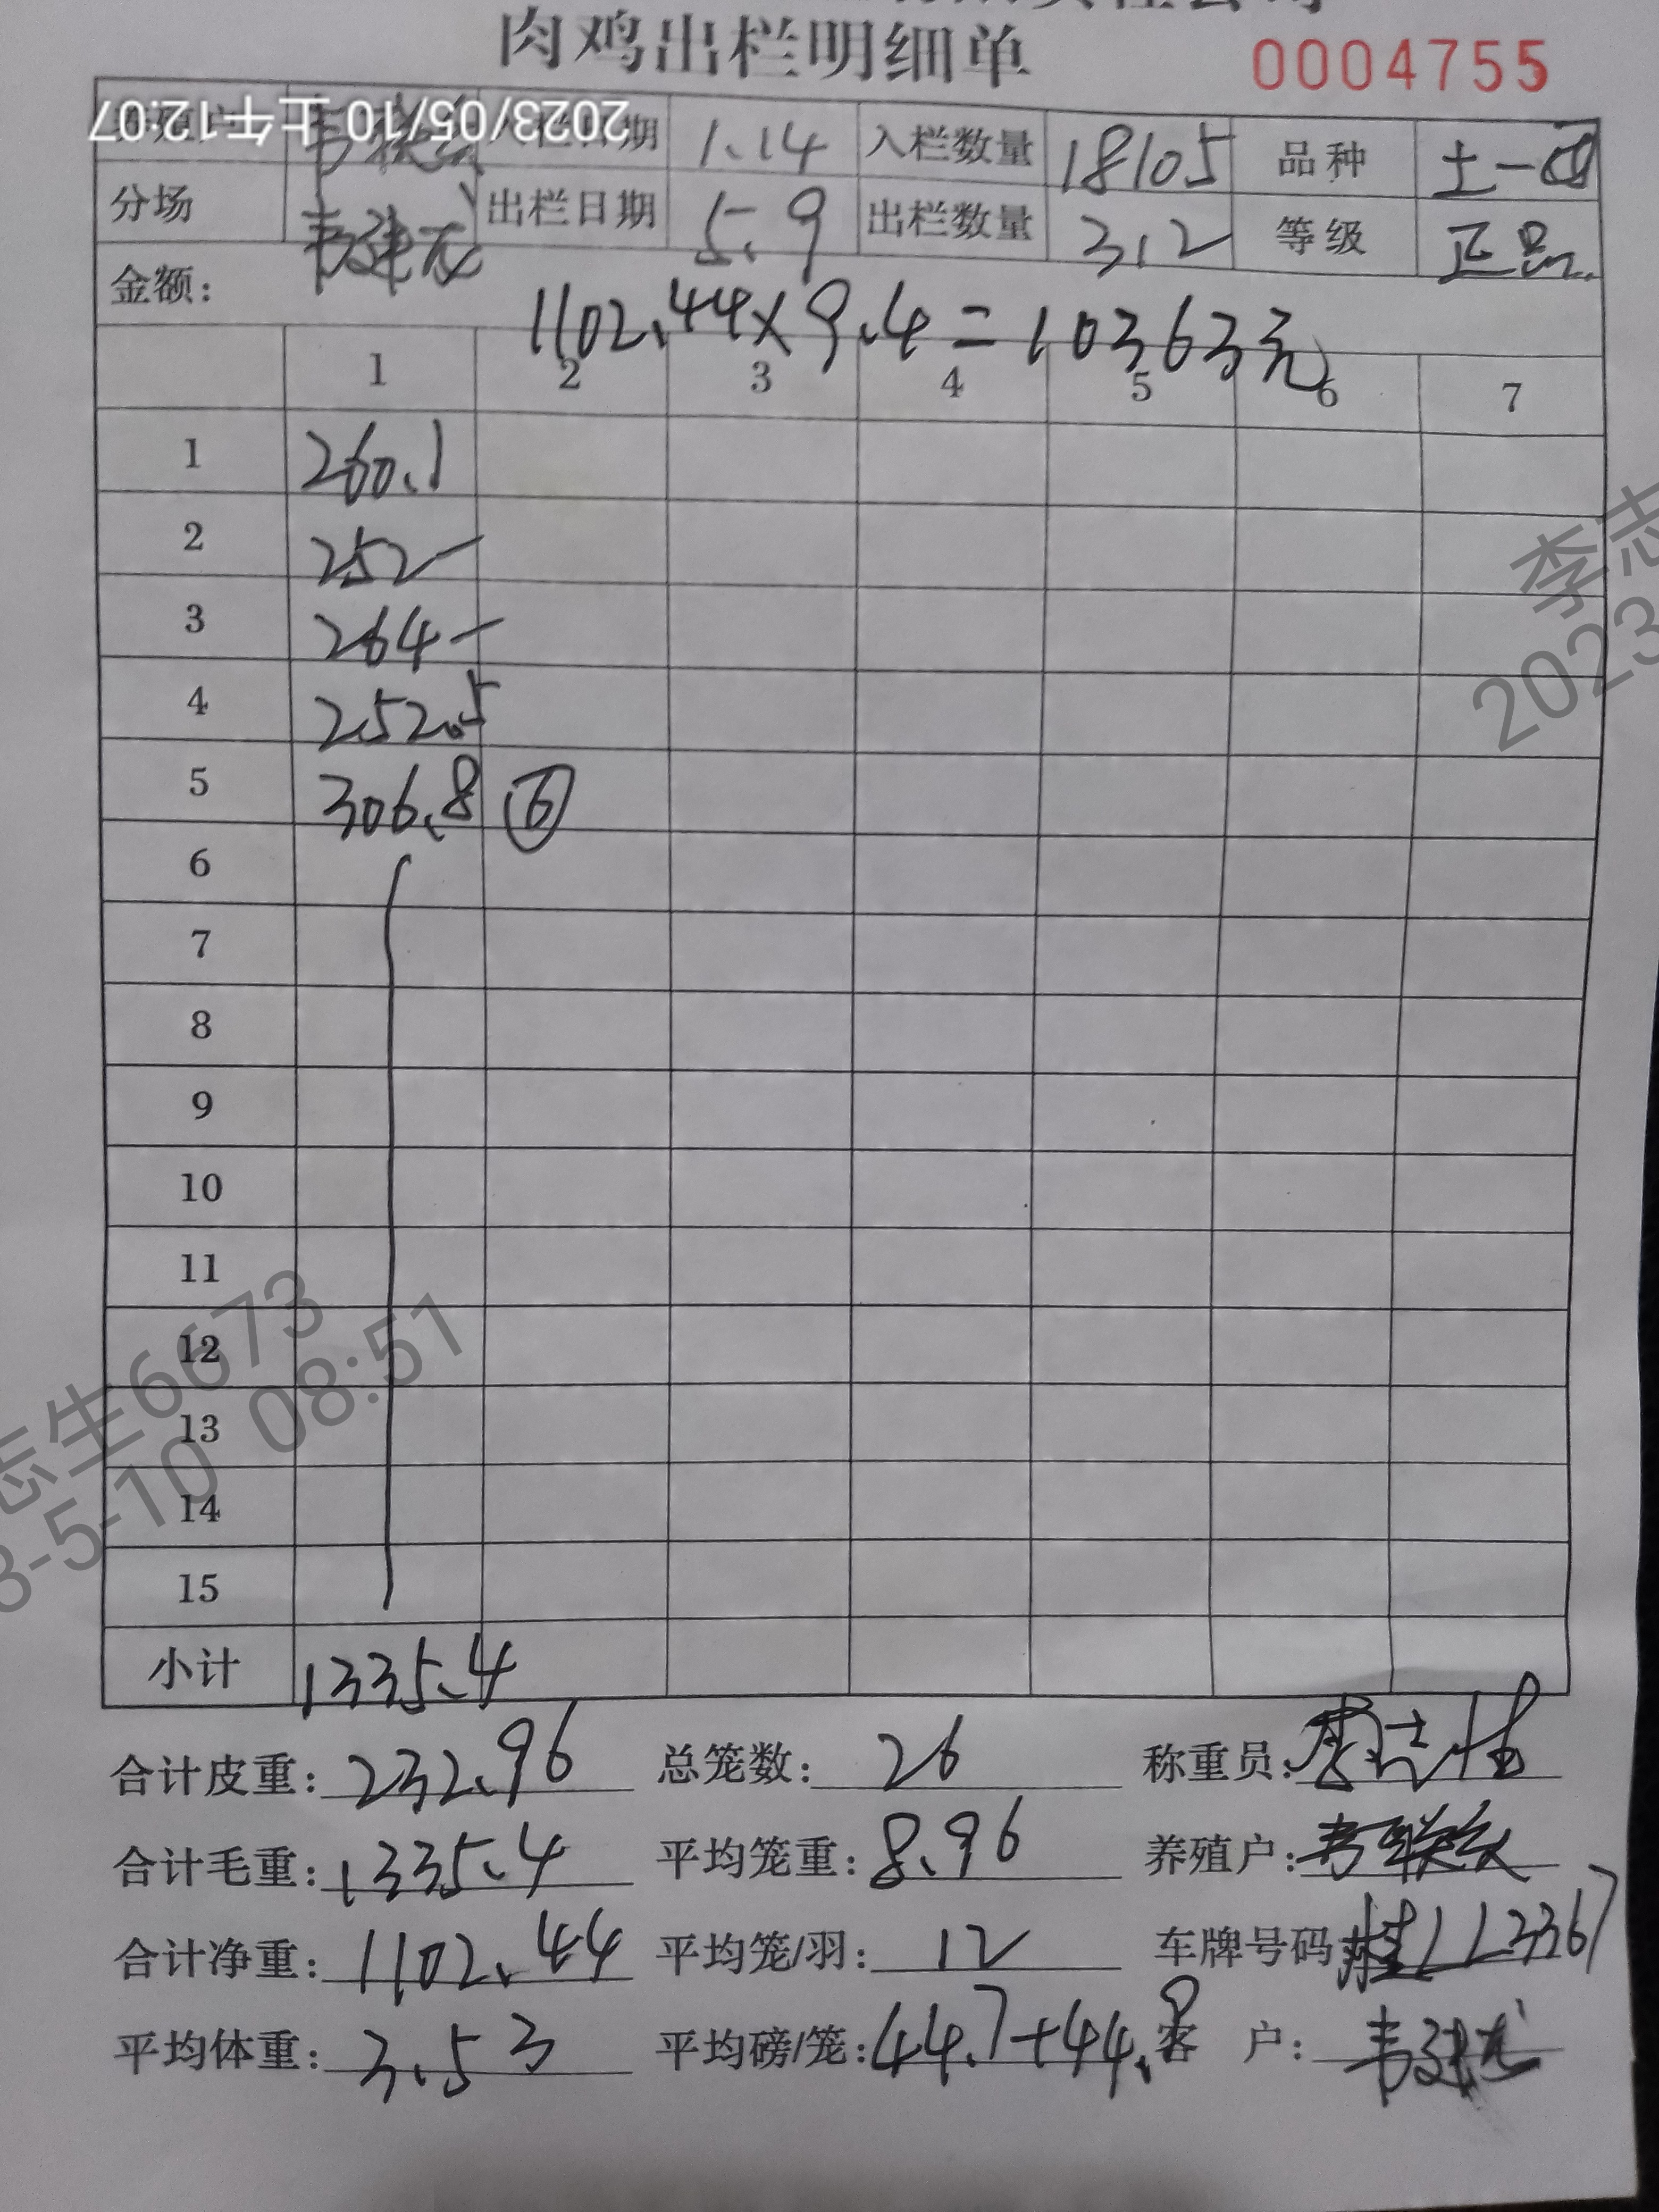 肉鸡出栏明细单 0004755
2023/05/10 上午12:07
日期 1.14 入栏数量 18105 品种 土一
分场 韦建龙 出栏日期 5.9 出栏数量 312 等级 正品
金额: 1102.44×9.4=10363元
1 2 3 4 5 6 7
1 260.1
2 252-
3 264-
4 252.5
5 306.8 ⑥
6
7
8
9
10
11
12
13
14
15
小计 1335.4
合计皮重: 232.96 总笼数: 26 称重员:
合计毛重: 1335.4 平均笼重: 8.96 养殖户: 韦
合计净重: 1102.44 平均笼/羽: 12 车牌号码 桂LL3367
平均体重: 3.53 平均磅/笼: 44.7+44.8 客户: 韦建龙
李志
2023
志生6673
3-5-10 08:51